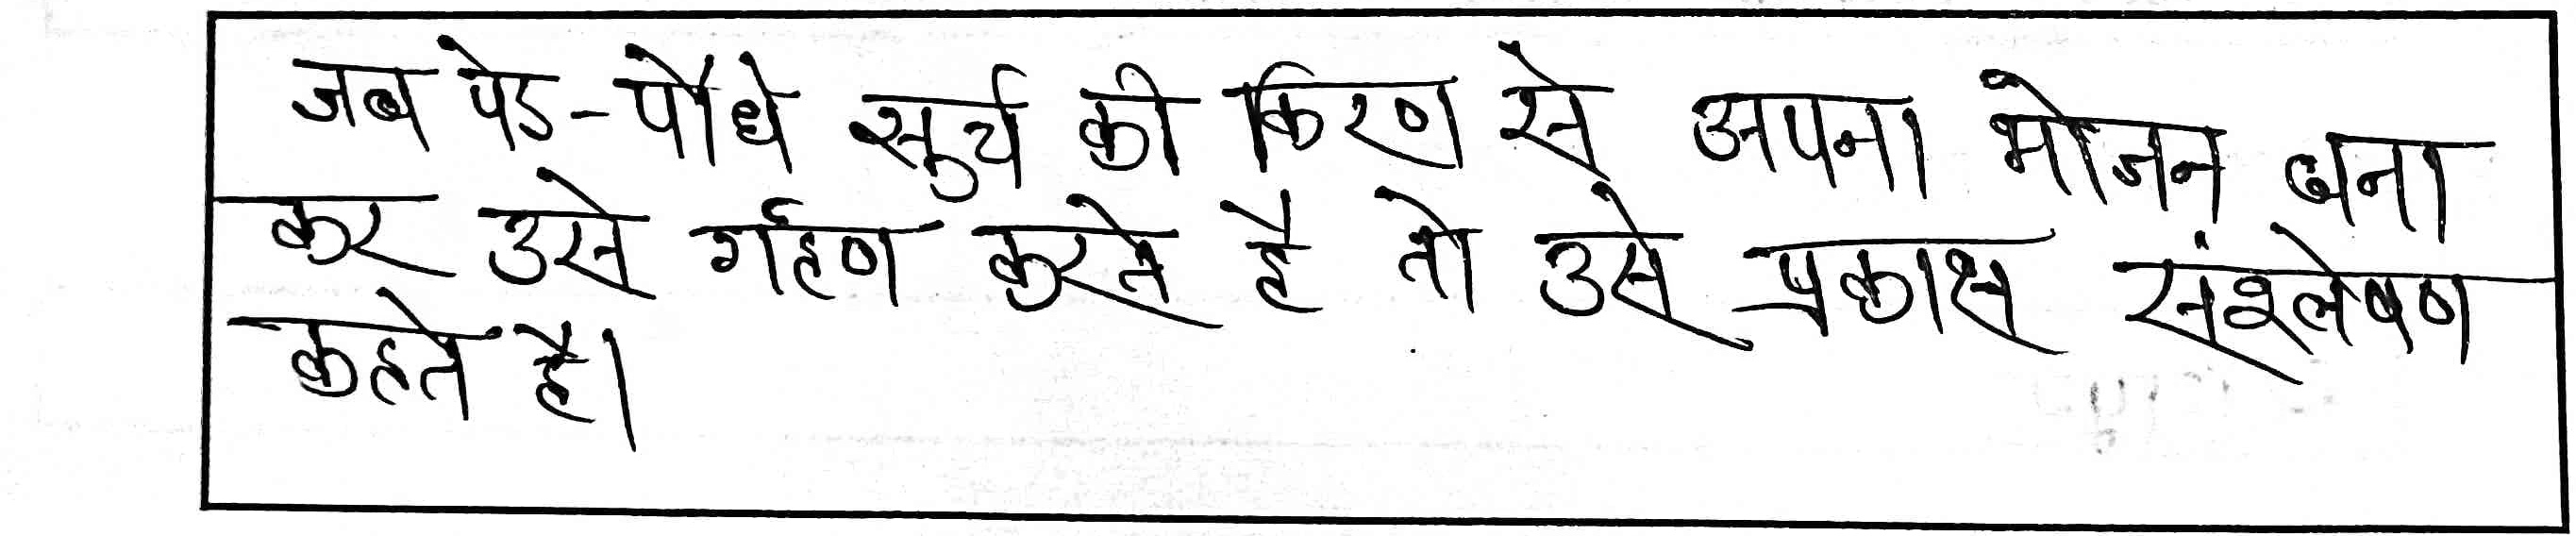 जब पेड-पौधे सुर्य की किरण से अपना भोजन बना
कर उसे र्गहण करते है तो उसे प्रकाश संश्लेषण
कहते है।